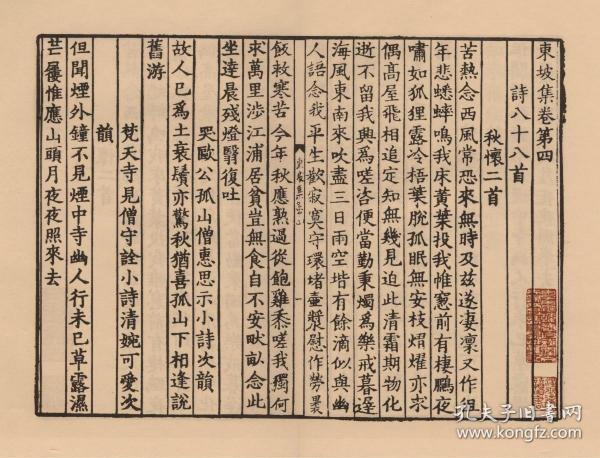 東坡集卷第四
詩八十八首
秋懷二首
苦熱念西風常恐來無時及茲遂凄凜又作徂
年悲蟋蟀鳴我床黃葉投我帷窻前有棲鵩夜
嘯如狐狸露冷梧葉脫孤眠無安枝熠燿亦求
偶高屋飛相追定知無幾見迫此清霜期物化
逝不留我興為嗟咨便當勤秉燭為樂戒暮遲
海風東南來吹盡三日雨空堦有餘滴似與幽
人語念我平生歡寂寞守環堵壷漿慰作勞裹
飯救寒苦今年秋應熟過從飽雞黍嗟我獨何
求萬里渉江浦居貧豈無食自不安畎畝念此
坐達晨殘燈翳復吐
哭歐公孤山僧惠思示小詩次韻
故人已為土衰鬢亦驚秋猶喜孤山下相逢說
舊游
梵天寺見僧守詮小詩清婉可愛次
韻
但聞煙外鐘不見煙中寺幽人行未已草露濕
芒屨惟應山頭月夜夜照來去
孔夫子旧书网
www.kongfz.com